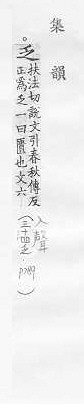 集韻
。乏扶法切說文引春秋傳反
正為乏一曰匱也文六
入聲
(三十四乏・P789)